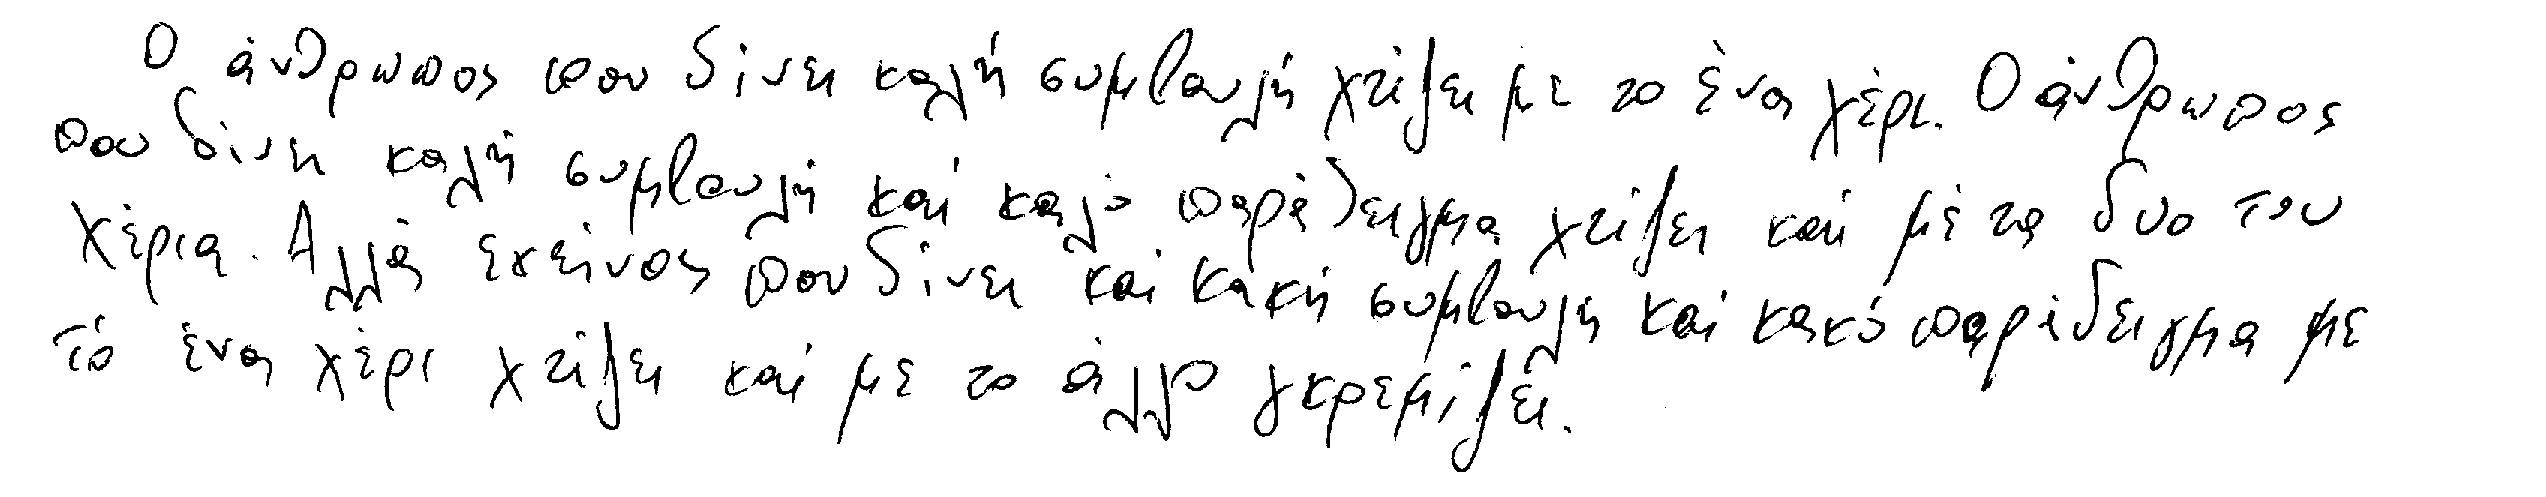 Ο άνθρωπος που δίνει καλή συμβουλή χτίζει με το ένα χέρι. Ο άνθρωπος
που δίνει καλή συμβουλή καί καλό παράδειγμα χτίζει καί μέ τα δυο του
χέρια. Αλλά εκείνος που δίνει και κακή συμβουλή καί κακό παράδειγμα με
τό ένα χέρι χτίζει καί με το άλλο γκρεμίζει.